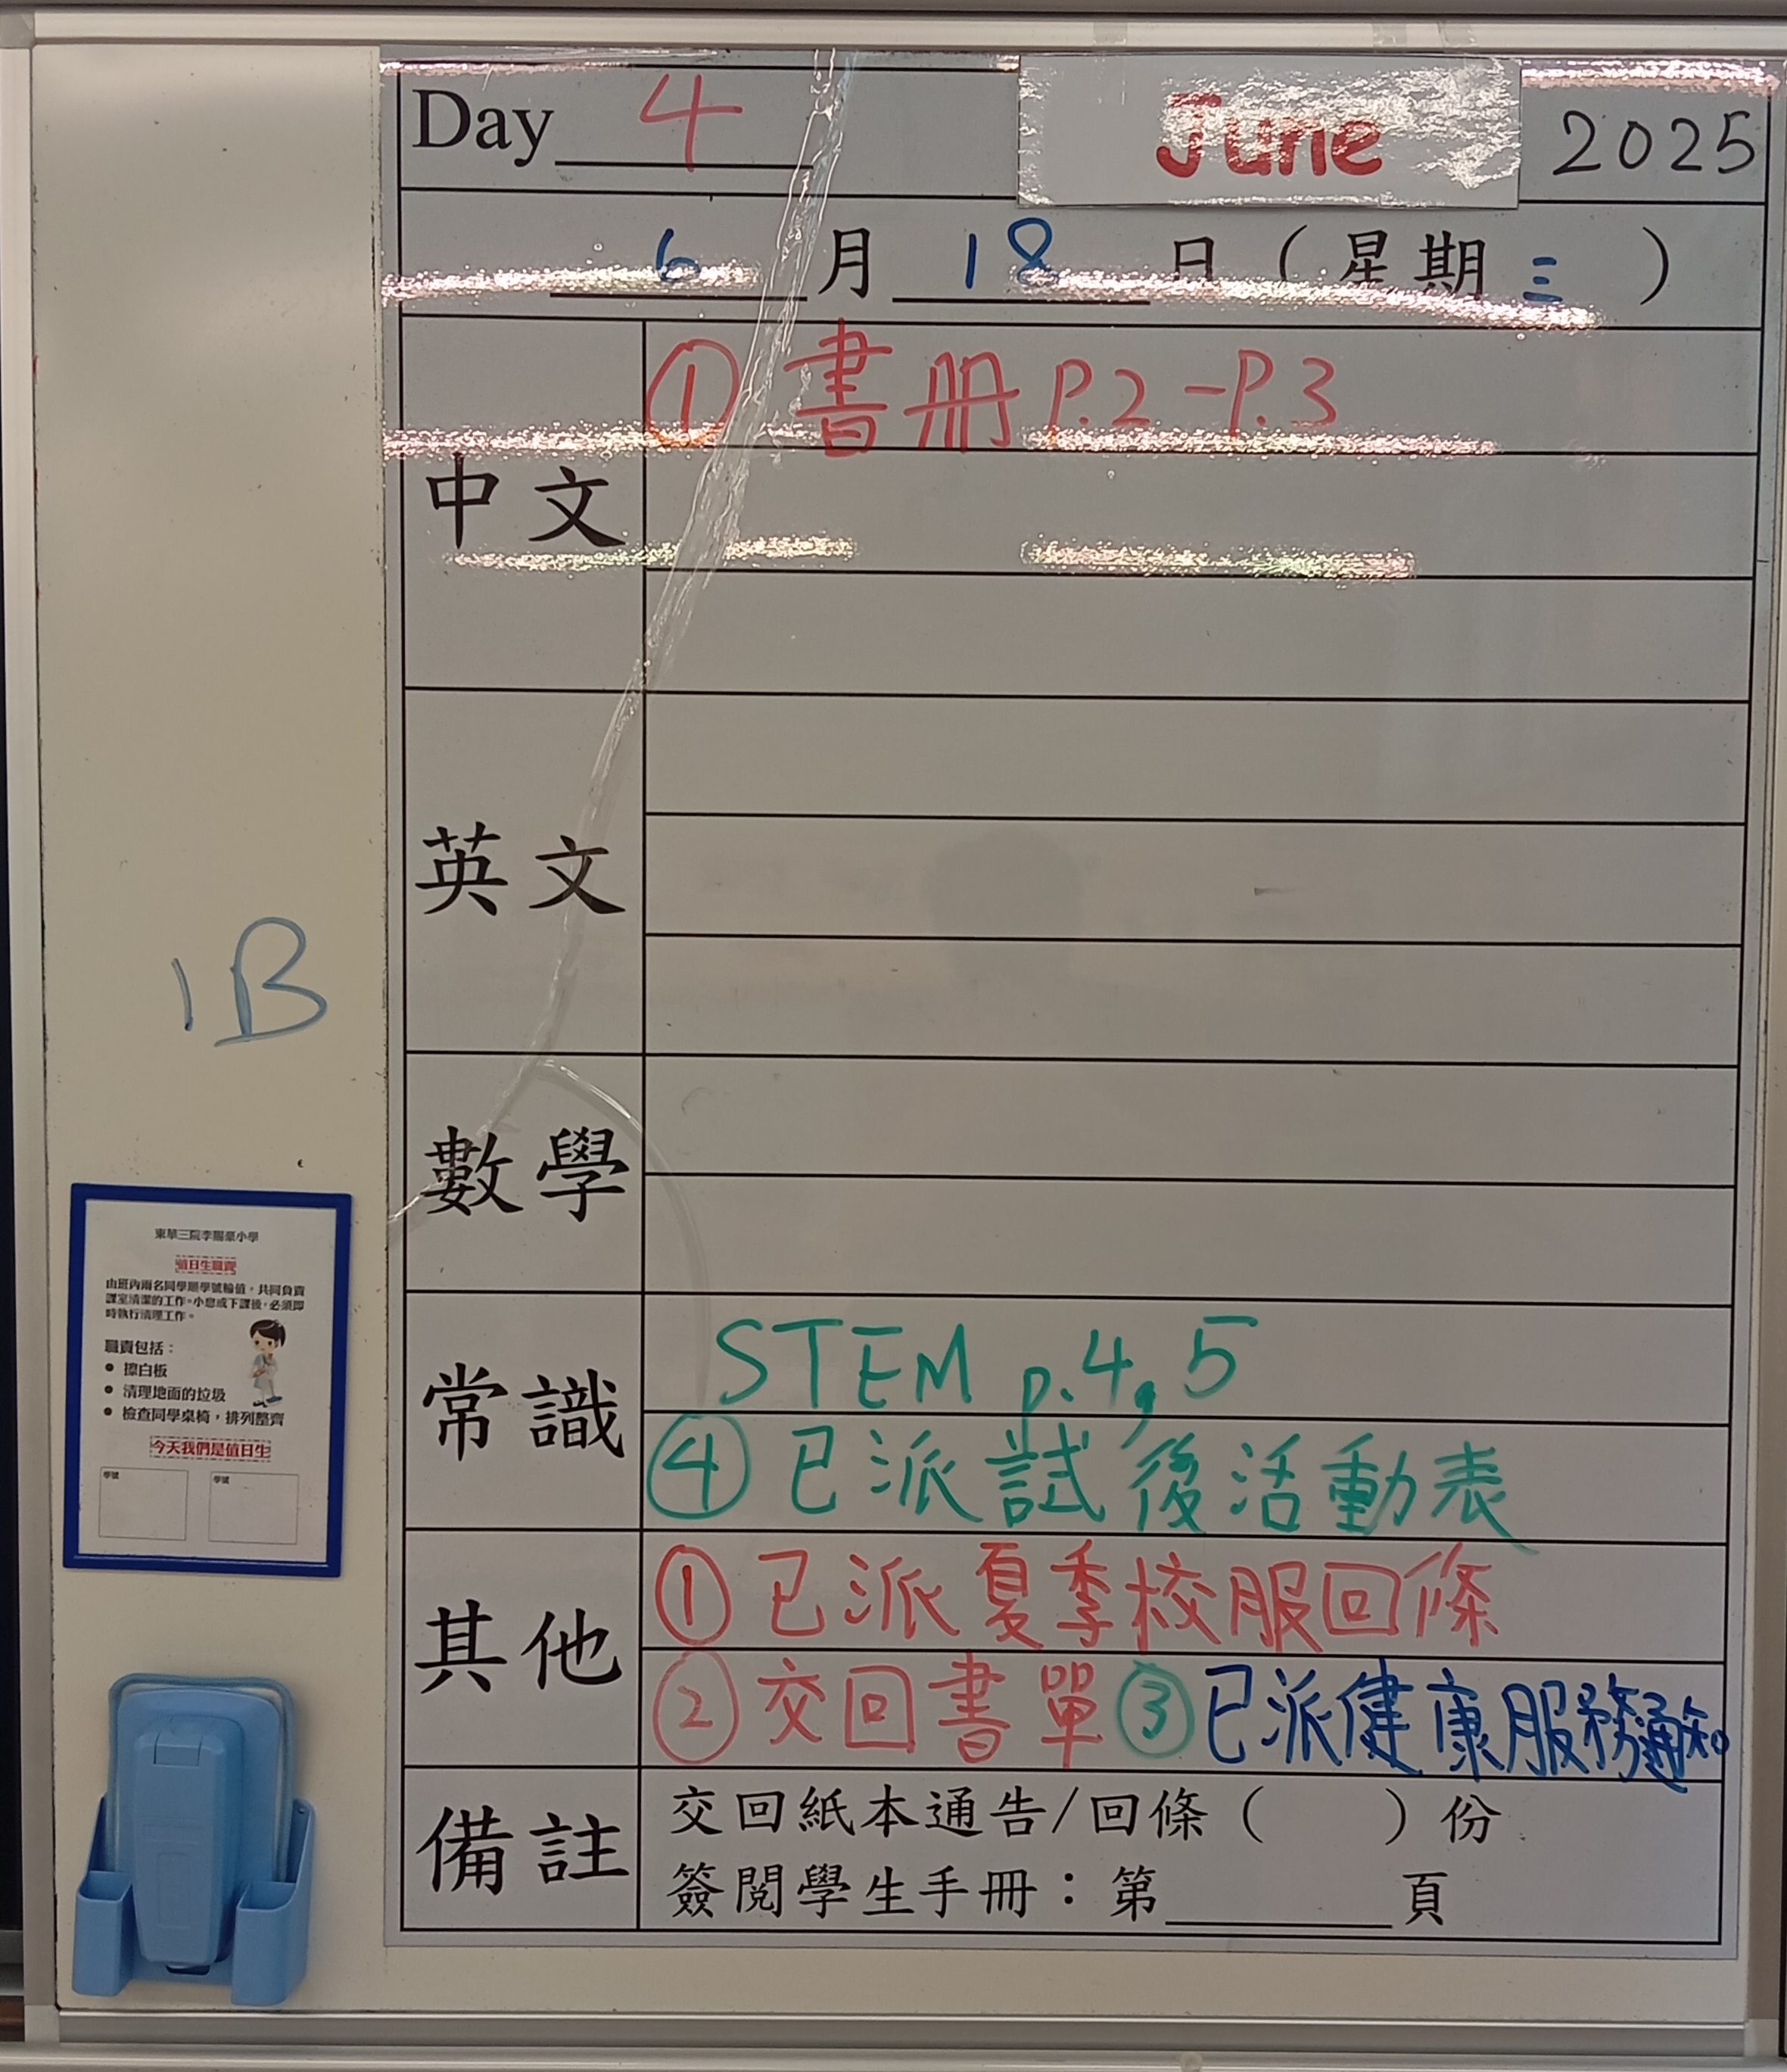 Day 4 June 2025
6 月 18 日 ( 星期 三 )
中文
① 書册 P.2 - P.3
英文
數學
常識
STEM p.4,5
④ 已派試後活動表
其他
① 已派夏季校服回條
② 交回書單 ③ 已派健康服務通知
備註
交回紙本通告/回條 ( ) 份
簽閱學生手冊：第______頁
1B
東華三院李賜豪小學
值日生職責
由班內兩名同學順學號輪值，共同負責
課室清潔的工作。小息或下課後，必須即
時執行清理工作。
職責包括：
• 擦白板
• 清理地面的垃圾
• 檢查同學桌椅，排列整齊
今天我們是值日生
學號 學號